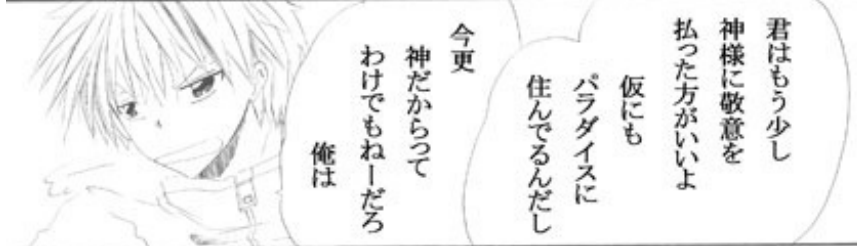 君はもう少し
神様に敬意を
払った方がいいよ
仮にも
パラダイスに
住んでるんだし
今更
神だからって
わけでもねーだろ
俺は